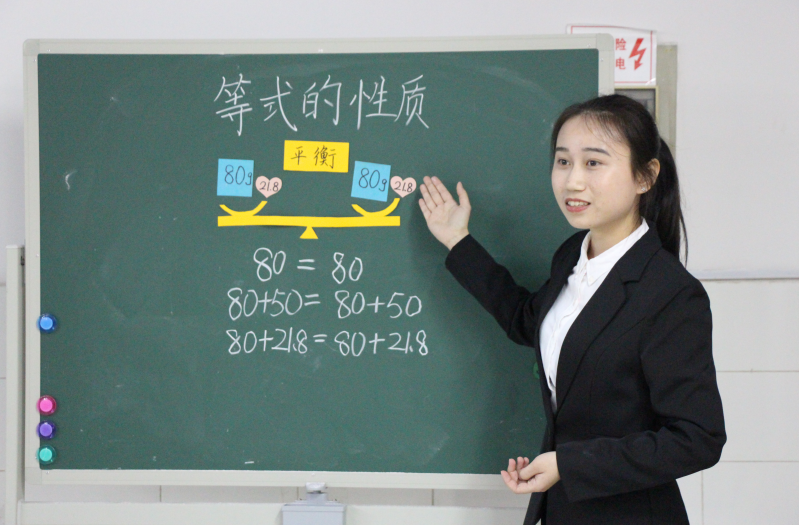 等式的性质
平衡
80g 21.8 80g 21.8
80 = 80
80+50 = 80+50
80+21.8 = 80+21.8
险
电